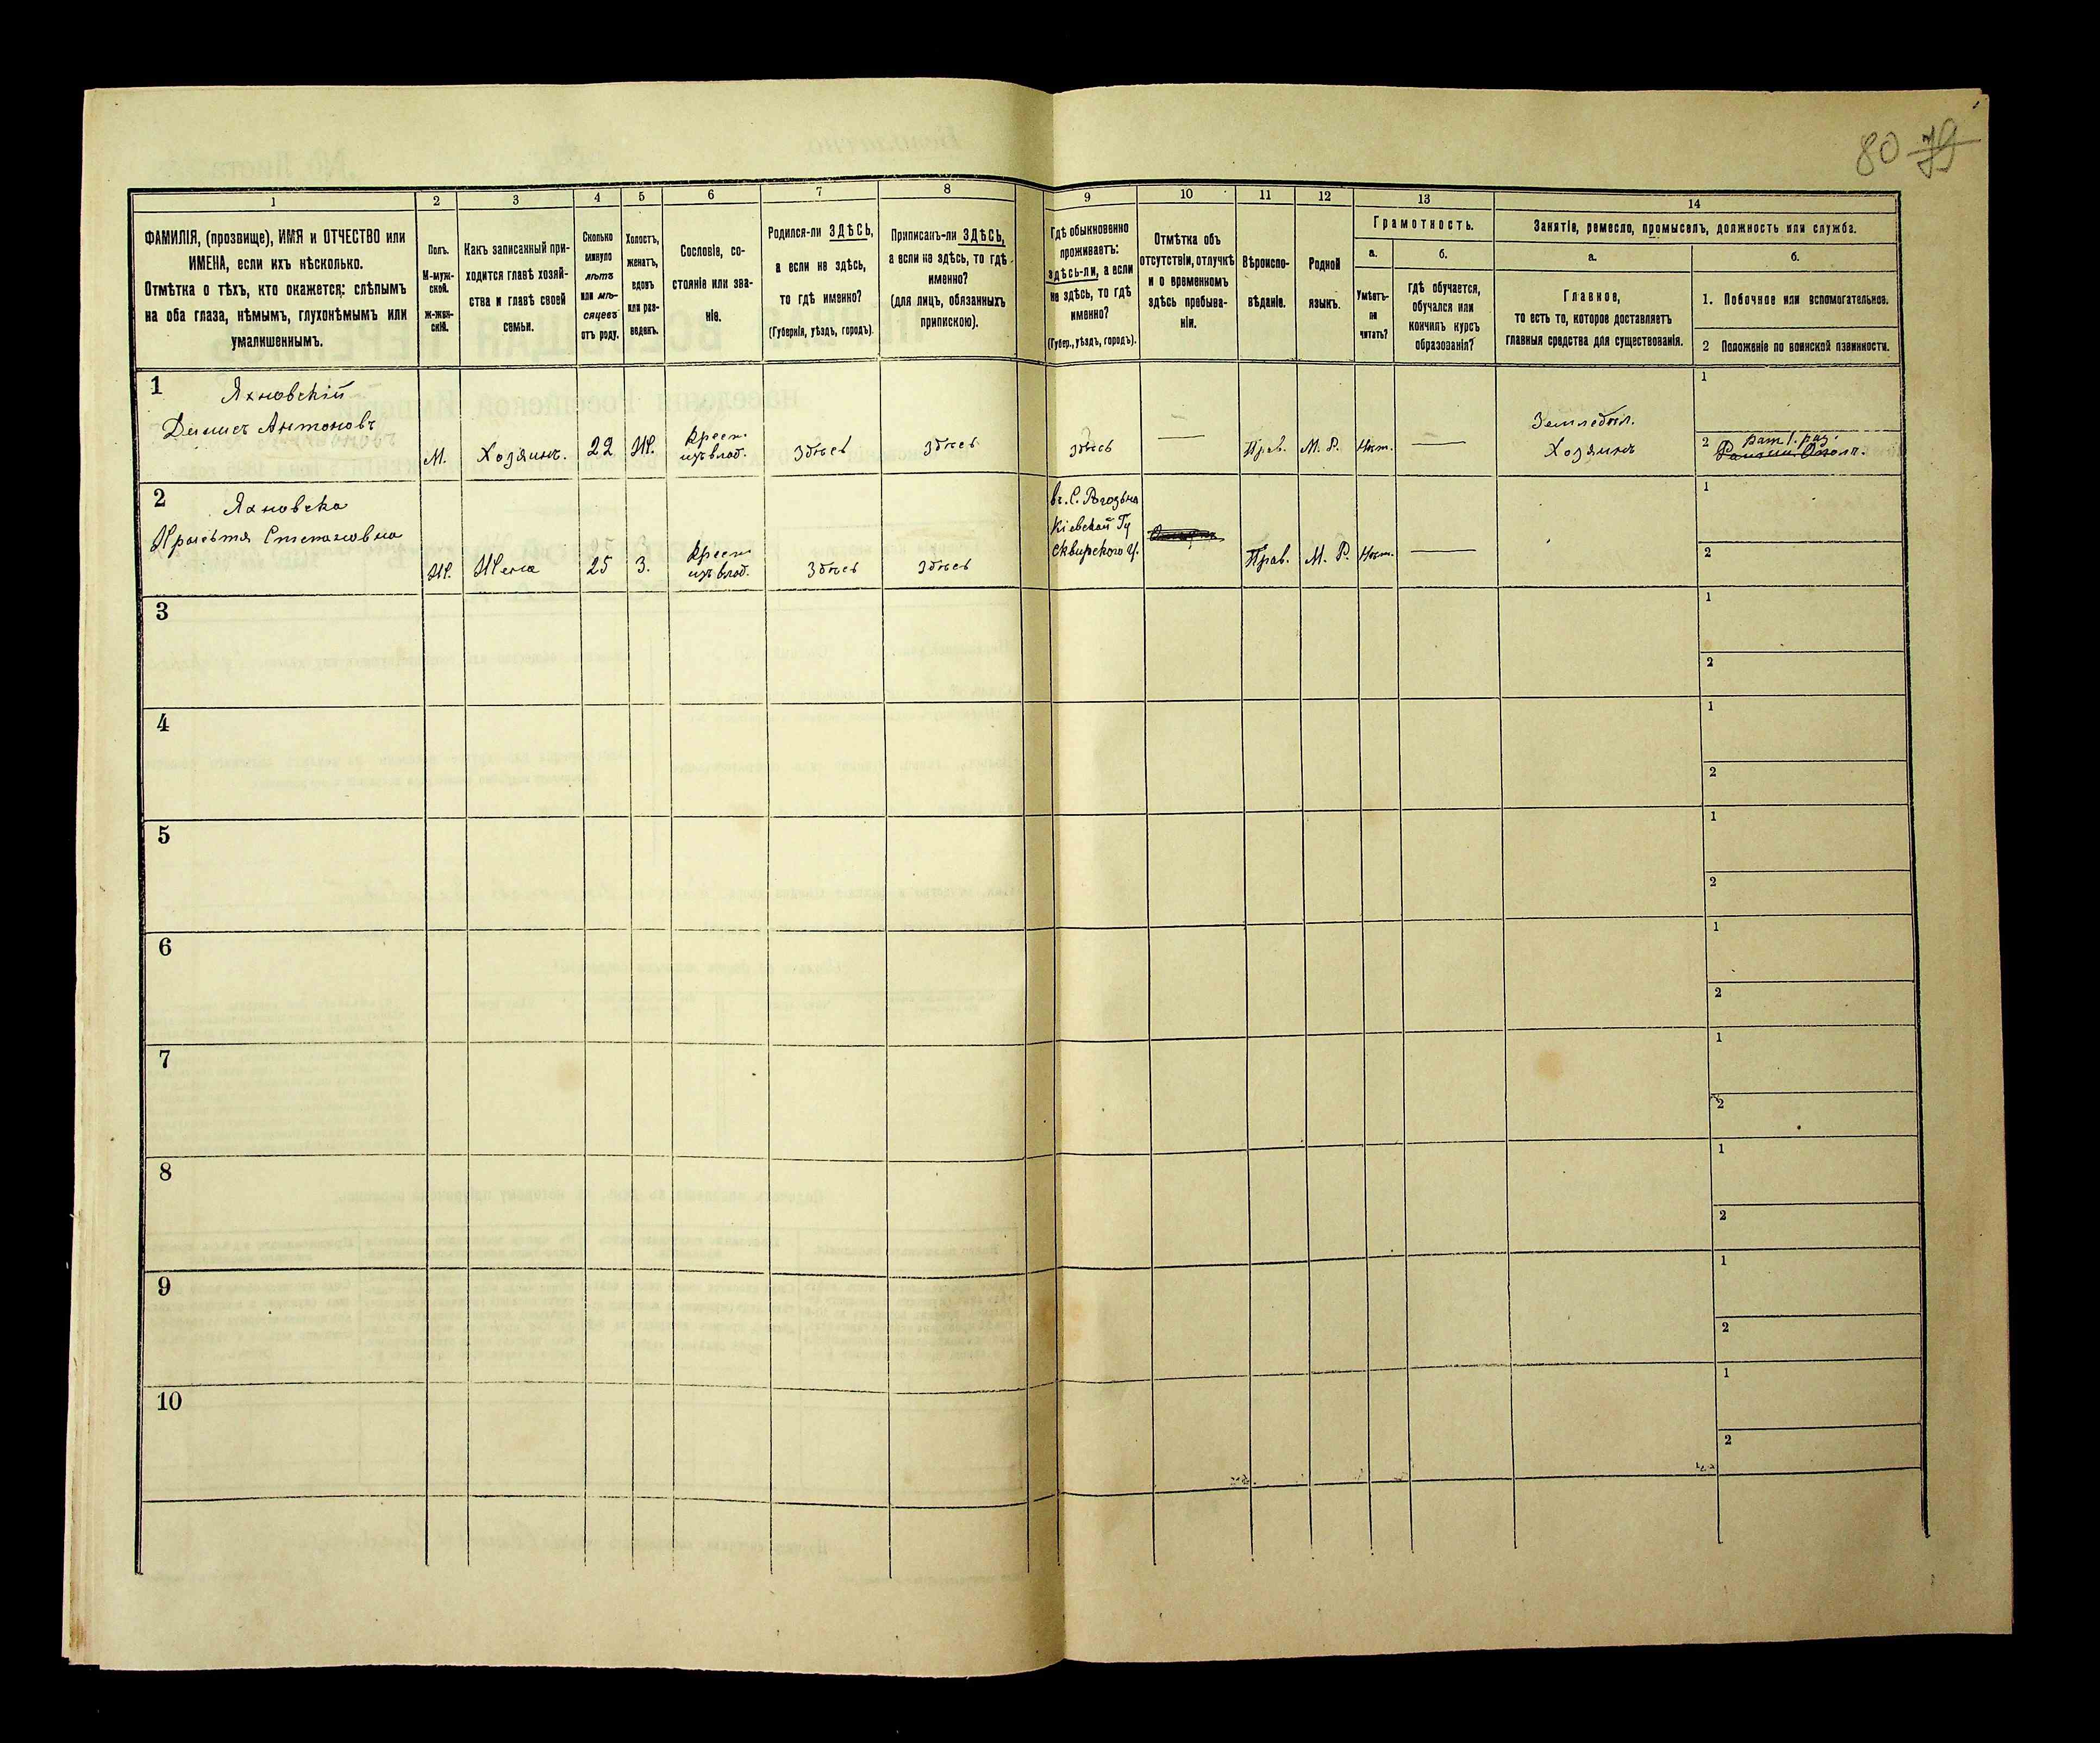 80 79
1 2 3 4 5 6 7 8 9 10 11 12 13 14
ФАМИЛІЯ, (прозвище), ИМЯ и ОТЧЕСТВО или
ИМЕНА, если ихъ нѣсколько.
Отмѣтка о тѣхъ, кто окажется: слѣпымъ
на оба глаза, нѣмымъ, глухонѣмымъ или
умалишеннымъ.
Полъ.
М-муж-
ской.
Ж-жен-
скій.
Какъ записанный при-
ходится главѣ хозяй-
ства и главѣ своей
семьи.
Сколько
минуло
лѣтъ
или мѣ-
сяцевъ
отъ роду.
Холостъ,
женатъ,
вдовъ
или раз-
веденъ.
Сословіе, со-
стояніе или зва-
ніе.
Родился-ли ЗДѢСЬ,
а если не здѣсь,
то гдѣ именно?
(Губернія, уѣздъ, городъ).
Приписанъ-ли ЗДѢСЬ,
а если не здѣсь, то гдѣ
именно?
(для лицъ, обязанныхъ
припискою).
Гдѣ обыкновенно
проживаетъ:
здѣсь-ли, а если
не здѣсь, то гдѣ
именно?
(Губер., уѣздъ, городъ).
Отмѣтка объ
отсутствіи, отлучкѣ
и о временномъ
здѣсь пребыва-
ніи.
Вѣроиспо-
вѣданіе.
Родной
языкъ.
Грамотность.
а.
Умѣетъ-
ли
читать?
б.
гдѣ обучается,
обучался или
кончилъ курсъ
образованія?
Занятіе, ремесло, промыселъ, должность или служба.
а.
Главное,
то есть то, которое доставляетъ
главныя средства для существованія.
б.
1. Побочное или вспомогательное.
2 Положеніе по воинской повинности.
1 Яхновскій
Антоновъ
М. Хозяинъ. 22 Ж. Крест. изъ влад. Здѣсь Здѣсь Здѣсь — Прав. М. Р. Нѣт. —
Земледѣл.
Хозяинъ
1
2 Рат. 1. раз.
2 Яхновска
Степановна
Ж. Жена 25 З. Крест. изъ влад. Здѣсь Здѣсь
Кіевской Гу
Сквирского У.
Прав. М. Р. Нѣт. —
1
2
3
1
2
4
1
2
5
1
2
6
1
2
7
1
2
8
1
2
9
1
2
10
1
2